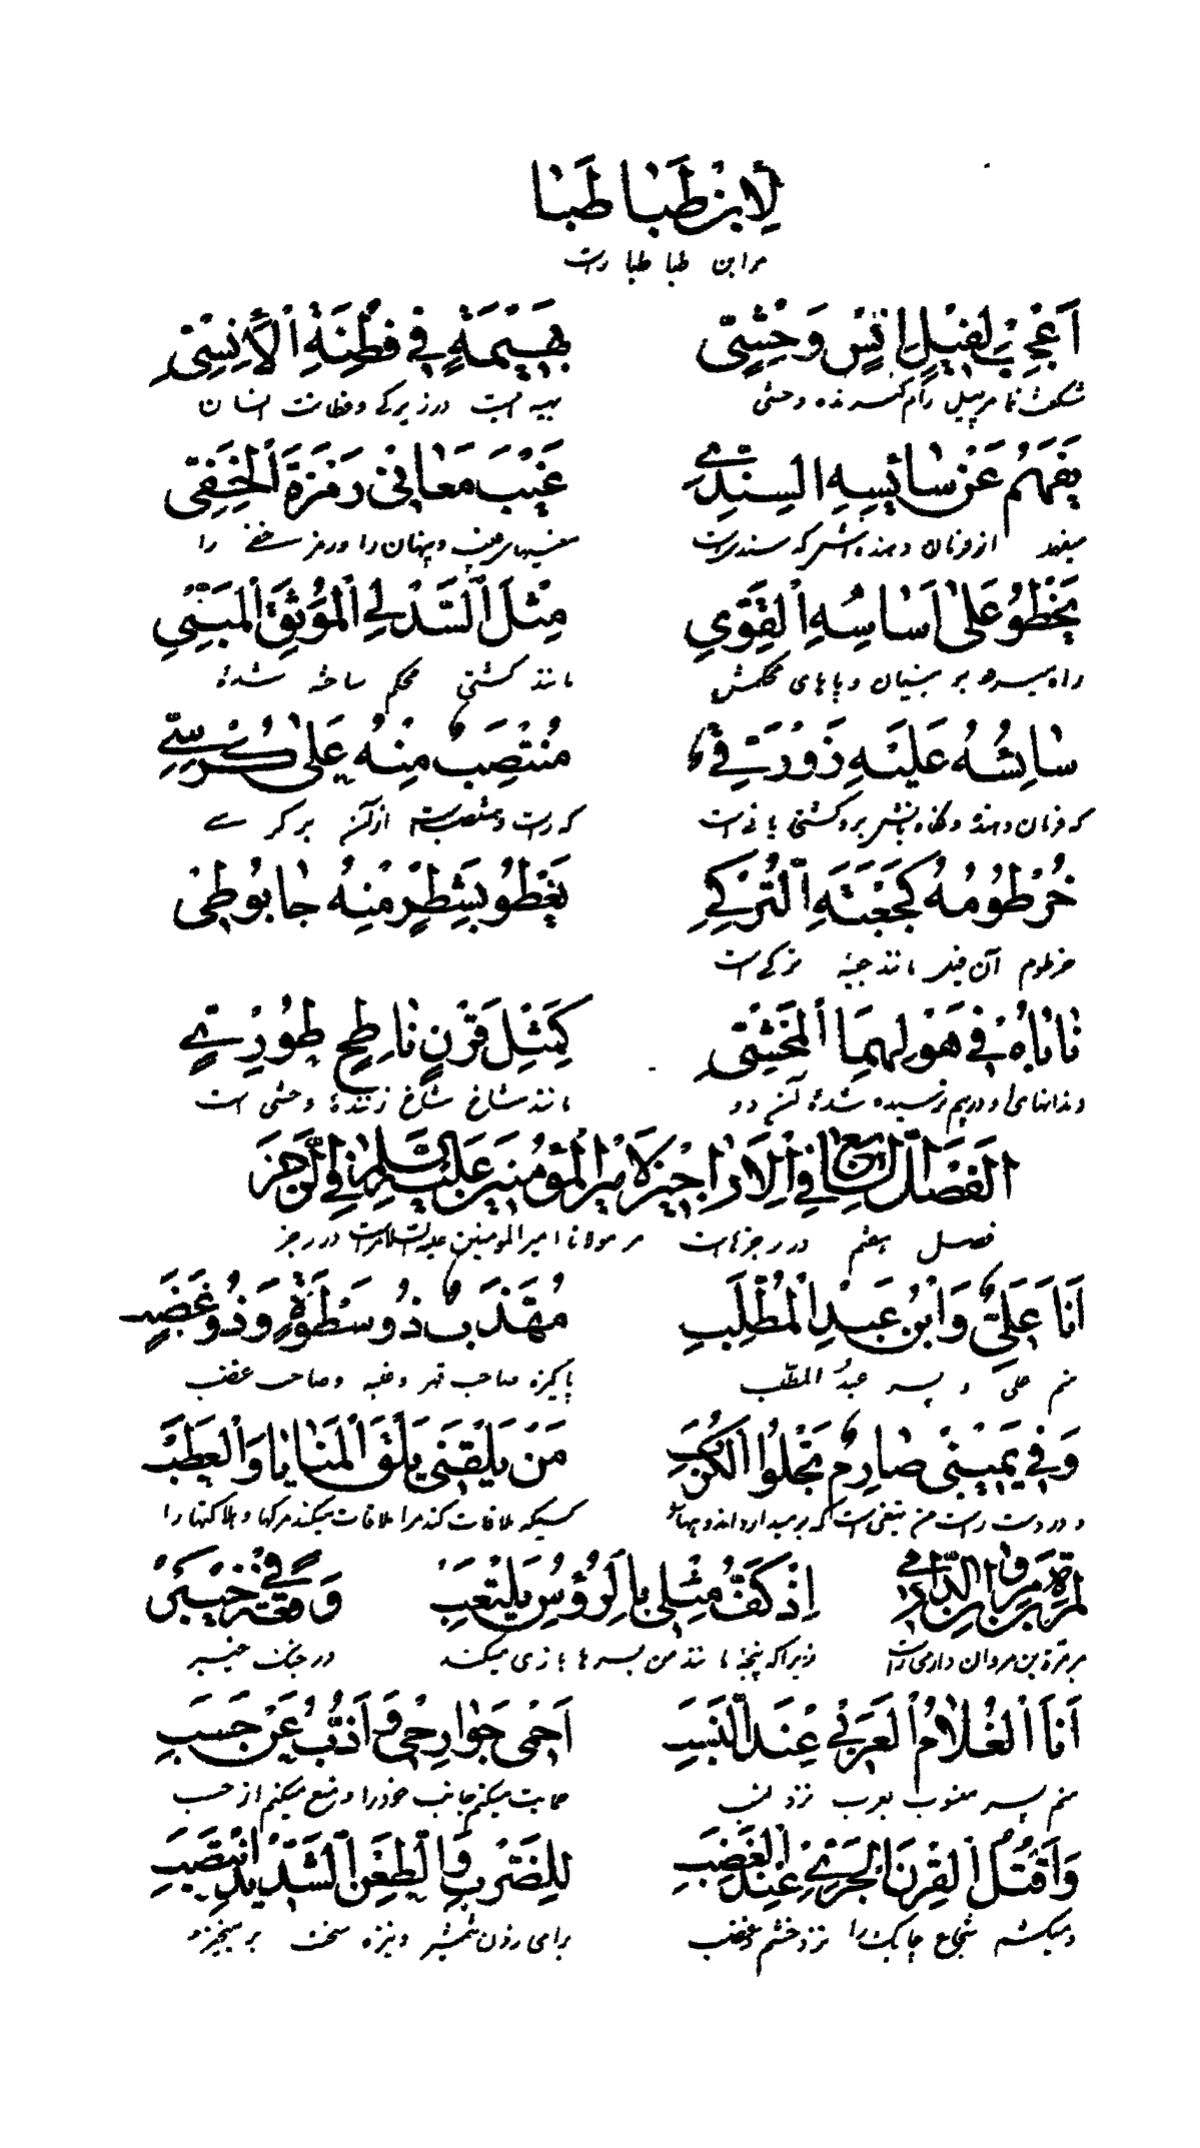 لِابْنِ طَبَا طَبَا
مر ابن طبا طبا راست
اَعْجِبْ بِفِيْلٍ اٰنِسٍ وَحْشِيّ بَهِيْمَةٍ فِي فِطْنَةِ الْأَنِسِيّ
شکفت نما مر پیل رام کننده وحشی بهیمه است در زیرکی و فطانت انسان
يَفْهَمُ عَنْ سٰائِسِهِ السِنْدِيّ غَيْبَ مَعٰانِي رَمْزَةِ الْخَفِيّ
میفهمد از فرمان دهنده‌اش که سندیست معنیهای غیب و پنهان را و رمز مخفی را
يَخْطُو عَلىٰ اَسٰاسِهِ الْقَوِيِ مِثْلَ الْسَّدْلِيِ الْمُوْثَقِ الْمَبْنِيِ
راه میرود بر بنیان و پاهای محکمش مانند کشتی محکم ساخته شده
سٰائِسُهُ عَلَيْهِ زَوْرَقِيّ مُنْتَصِبٌ مِنْهُ عَلىٰ كُرْسِيّ
که فرمان دهنده و نگاه بر و کشتی بانی است که راست و منتصب است از آن بر کرسی
خُرْطُوْمُهُ كَجَعْبَةِ الْتُرْكِيِ يَغْطُو بِشَطْرٍ مِنْهُ جٰابُوطِيْ
خرطوم آن فیل مانند جعبه ترکی است
نٰابٰاهُ فِي هَوْلِهِمَا الْمَخْشِيّ كَمِثْلِ قَرْنٍ نٰاطِحٍ طُوْرِيّ
دندانهای او در بیم ترسیده شده آن دو مانند شاخ شاخ زننده وحشی است
الفَصْلُ السابع فِي الْاَرٰاجِيْزِ لِاَمِيْرِ الْمُؤْمِنِيْنَ عَلَيْهِ السَّلٰامِ فِي الرَّجَزِ
فصل هفتم در رجزهاست مر مولانا امیر المومنین علیه السلام راست در رجز
اَنَا عَلِيٌّ وَابْنُ عَبْدِ الْمُطَّلِبِ مُهَذَّبٌ ذُو سَطْوَةٍ وَذُو غَضَبِ
منم علی و پسر عبد المطلب پاکیزه صاحب قهر و غلبه و صاحب غضب
وَفِي يَمِيْنِي صٰارِمٌ تَجْلُوا الْكُرَبِ مَنْ يَلْقَنِي يَلْقَ الْمَنٰايٰا وَالْعَطَبَ
و در دست راست منم تیغی است که بر میدارد اندوهها را کسیکه ملاقات کند مرا ملاقات میکند مرگها و هلاکتها را
لمرة بن مروان الدارمي اِذْ كَفُّ مِثْلِي بِالرُؤُسِ يَلْتَعِبِ وَفِي وَقْعَةِ خَيْبَر
مر مرة بن مروان دارمی راست زیرا که پنجه مانند من بسرها بازی میکند در جنگ خیبر
اَنَا الْغُلَامُ الْعَرَبِيْ عِنْدَ الْنَسَبِ اَحْمِي جَوٰارِحِي وَ اَذُبُّ عَنْ حَسَبِ
منم پسر منسوب بعرب نزد نسب حمایت میکنم جانب خود را و دفع میکنم از حسب
وَاَقْتُلُ الْقِرْنَ الْجَرِيْ عِنْدَ الْغَضَبِ لِلضَّرْبِ وَالْطَعْنِ الْشَّدِيْدِ انْتَصِبِ
و میکشم شجاع چابک را نزد خشم و غضب برای زدن شمشیر و نیزه سخت بر میخیزم